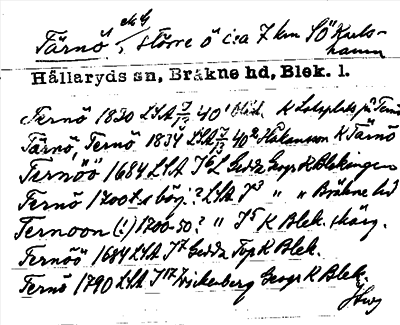 Tärnö, större ö c:a 7 km SÖ Karls-
hamn
Hällaryds sn, Bräkne hd, Blek. l.
Ternö 1830 LSA 40 K Lotsplats på Ternö
Tärnö, Ternö 1834 LSA 40 Håkansson K Tärnö
Ternöö 1684 LSA Gedda Geogr K Blekingen
Ternö 1700t:s börj.? LSA J3 " " Bräkne hd
Ternoon (!) 1700-50? " J5 K Blek. skärg.
Ternöö 1684 LSA J7 Gedda Top K Blek.
Ternö 1790 LSA J17 Wickenberg Geogr K Blek.